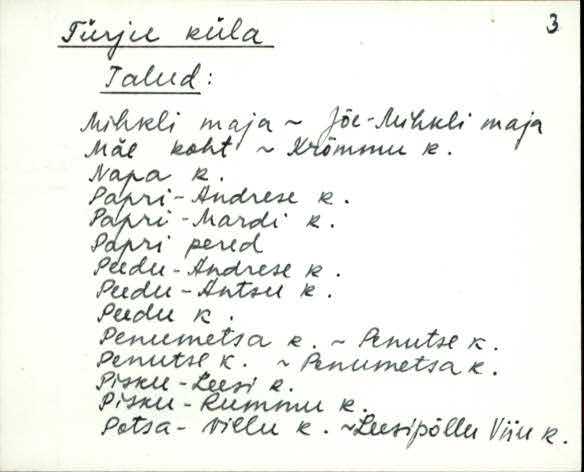 3
Türju küla
Talud:
Mihkli maja ~ Jõe-Mihkli maja
Mäe koht ~ Krõmmu k.
Napa k.
Papri-Andrese k.
Papri-Mardi k.
Papri pered
Peedu-Andrese k.
Peedu-Antsu k.
Peedu k.
Penumetsa k. ~ Penutse k.
Penutse k. ~ Penumetsa k.
Pisku-Leesi k.
Pisku-Rummu k.
Potsa-Villu k. ~Leesipõllu Viiu k.